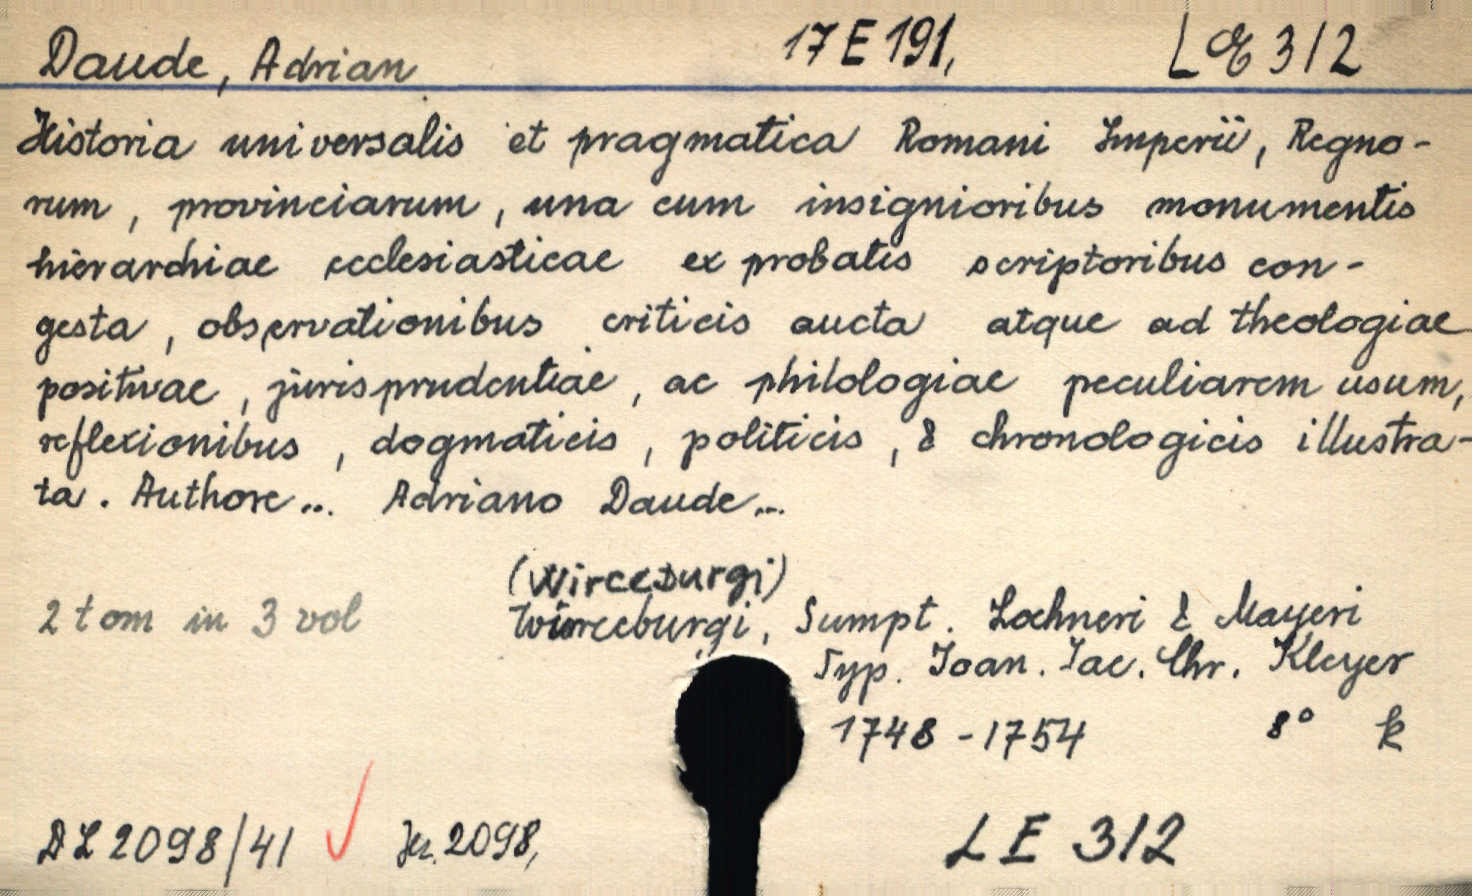 Daude, Adrian 17 E 191, L E 312
Historia universalis et pragmatica Romani Imperii, Regno-
rum, provinciarum, una cum insignioribus monumentis
hierarchiae ecclesiasticae ex probatis scriptoribus con-
gesta, observationibus criticis aucta atque ad theologiae
positivae, jurisprudentiae, ac philologiae peculiarem usum,
reflexionibus, dogmaticis, politicis, & chronologicis illustra-
ta. Authore... Adriano Daude...
(Wirceburgi)
2 tom in 3 vol Wirceburgi, Sumpt. Lochneri & Mayeri
Typ. Joan. Jac. Chr. Kleyer
1748-1754 8° k
2098/41 2098, LE 312